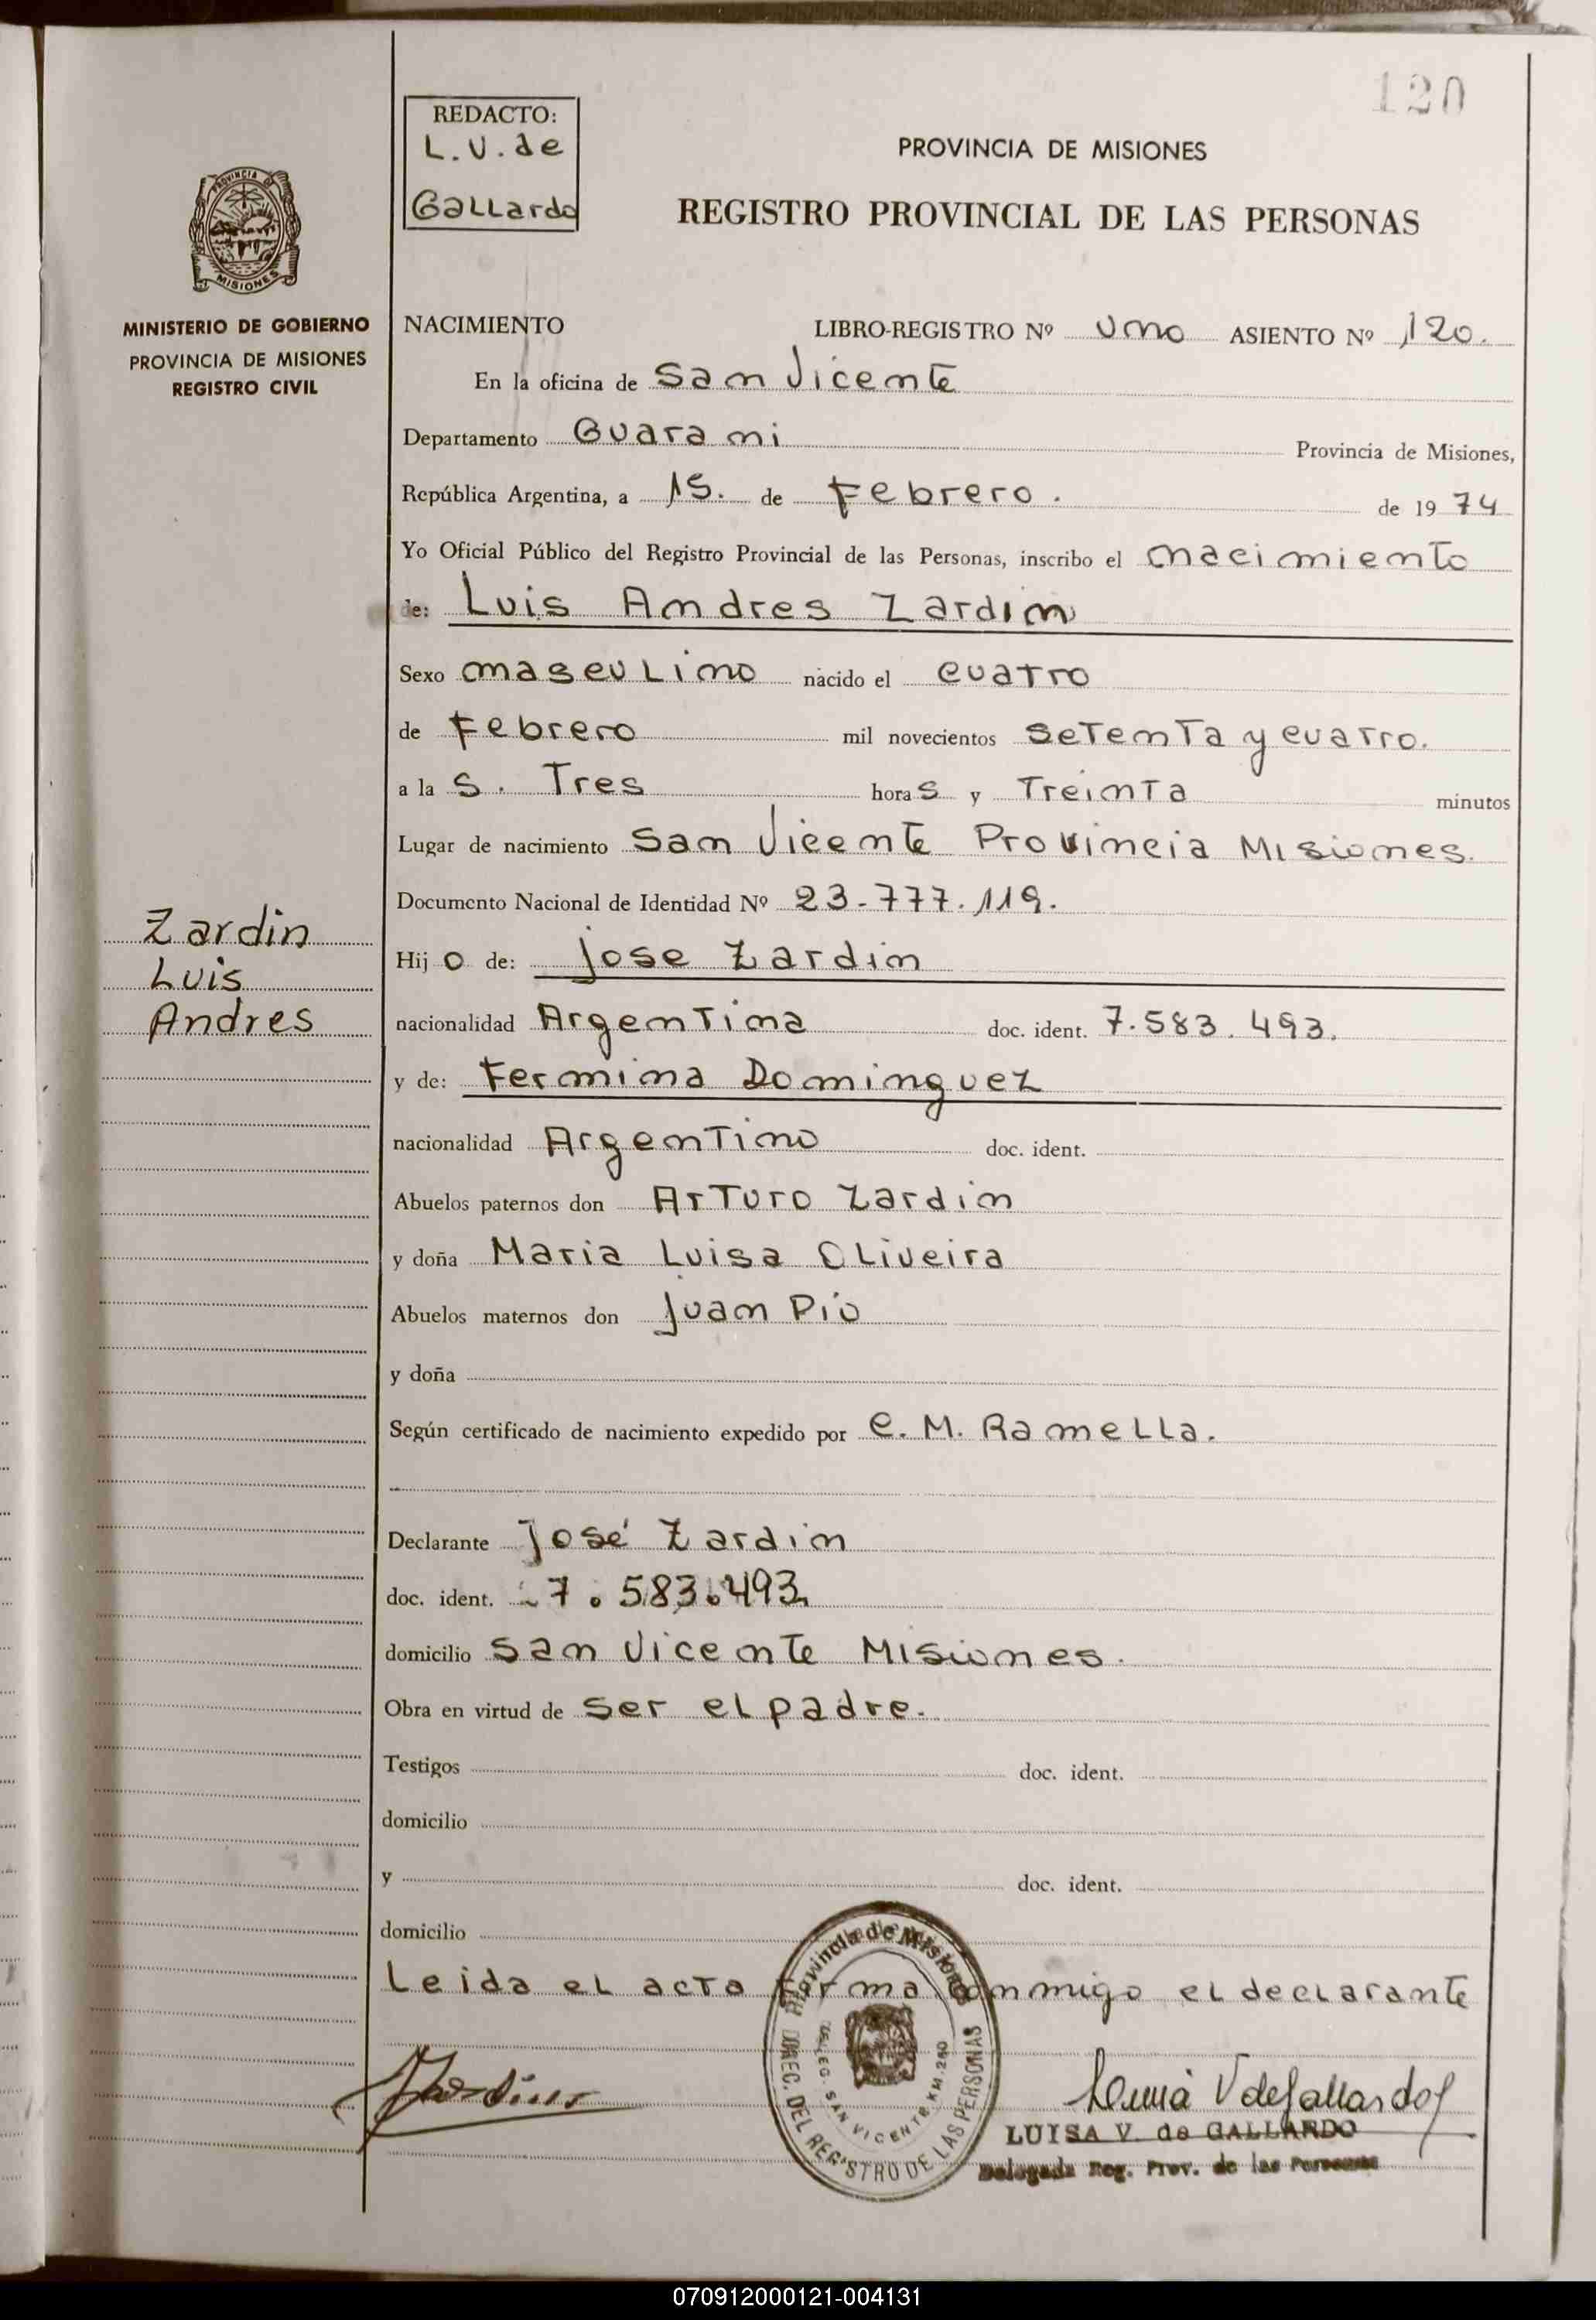 120
REDACTO:
L.V. de
Gallardo
PROVINCIA DE MISIONES
REGISTRO PROVINCIAL DE LAS PERSONAS
PROVINCIA DE
MISIONES
MINISTERIO DE GOBIERNO
PROVINCIA DE MISIONES
REGISTRO CIVIL
NACIMIENTO LIBRO-REGISTRO Nº Uno ASIENTO Nº 120.
En la oficina de San Vicente
Departamento Guarani Provincia de Misiones,
República Argentina, a 15. de Febrero. de 1974
Yo Oficial Público del Registro Provincial de las Personas, inscribo el nacimiento
de: Luis Andres Zardin
Sexo masculino nacido el cuatro
de Febrero mil novecientos setenta y cuatro.
a las. Tres horas y Treinta minutos
Lugar de nacimiento San Vicente Provincia Misiones.
Documento Nacional de Identidad Nº 23-777.119.
Zardin
Luis
Andres
Hijo de: Jose Zardin
nacionalidad Argentina doc. ident. 7.583.493.
y de: Fermina Dominguez
nacionalidad Argentino doc. ident.
Abuelos paternos don Arturo Zardin
y doña Maria Luisa Oliveira
Abuelos maternos don Juan Pio
y doña
Según certificado de nacimiento expedido por C. M. Ramella.
Declarante José Zardin
doc. ident. 7.583.493
domicilio San Vicente Misiones.
Obra en virtud de ser el padre.
Testigos doc. ident.
domicilio
y doc. ident.
domicilio
Leida el acta firma conmigo el declarante
Provincia de Misiones
DIREC. DEL REGISTRO DE LAS PERSONAS
DELEG. SAN VICENTE KM. 260
Zardin
Luisa V de Gallardo
LUISA V. de GALLARDO
Delegada Reg. Prov. de las Personas
070912000121-004131